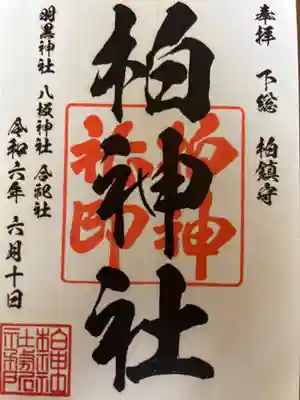 奉拝 下総 柏鎮守
柏神社
羽黒神社 八坂神社 合祀社
令和六年 六月十日
柏神
社印